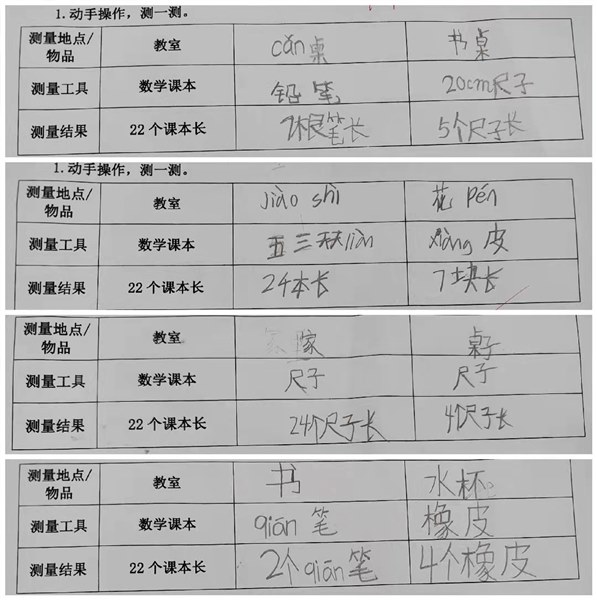 1.动手操作，测一测。
测量地点/物品 教室 cān桌 书桌
测量工具 数学课本 铅笔 20cm尺子
测量结果 22个课本长 7根笔长 5个尺子长
1.动手操作，测一测。
测量地点/物品 教室 jiào shì 花pén
测量工具 数学课本 五三天天liàn xiàng皮
测量结果 22个课本长 24本长 7块长
测量地点/物品 教室 家 桌子
测量工具 数学课本 尺子 尺子
测量结果 22个课本长 24个尺子长 4个尺子长
测量地点/物品 教室 书 水杯
测量工具 数学课本 qiān笔 橡皮
测量结果 22个课本长 2个qiān笔 4个橡皮